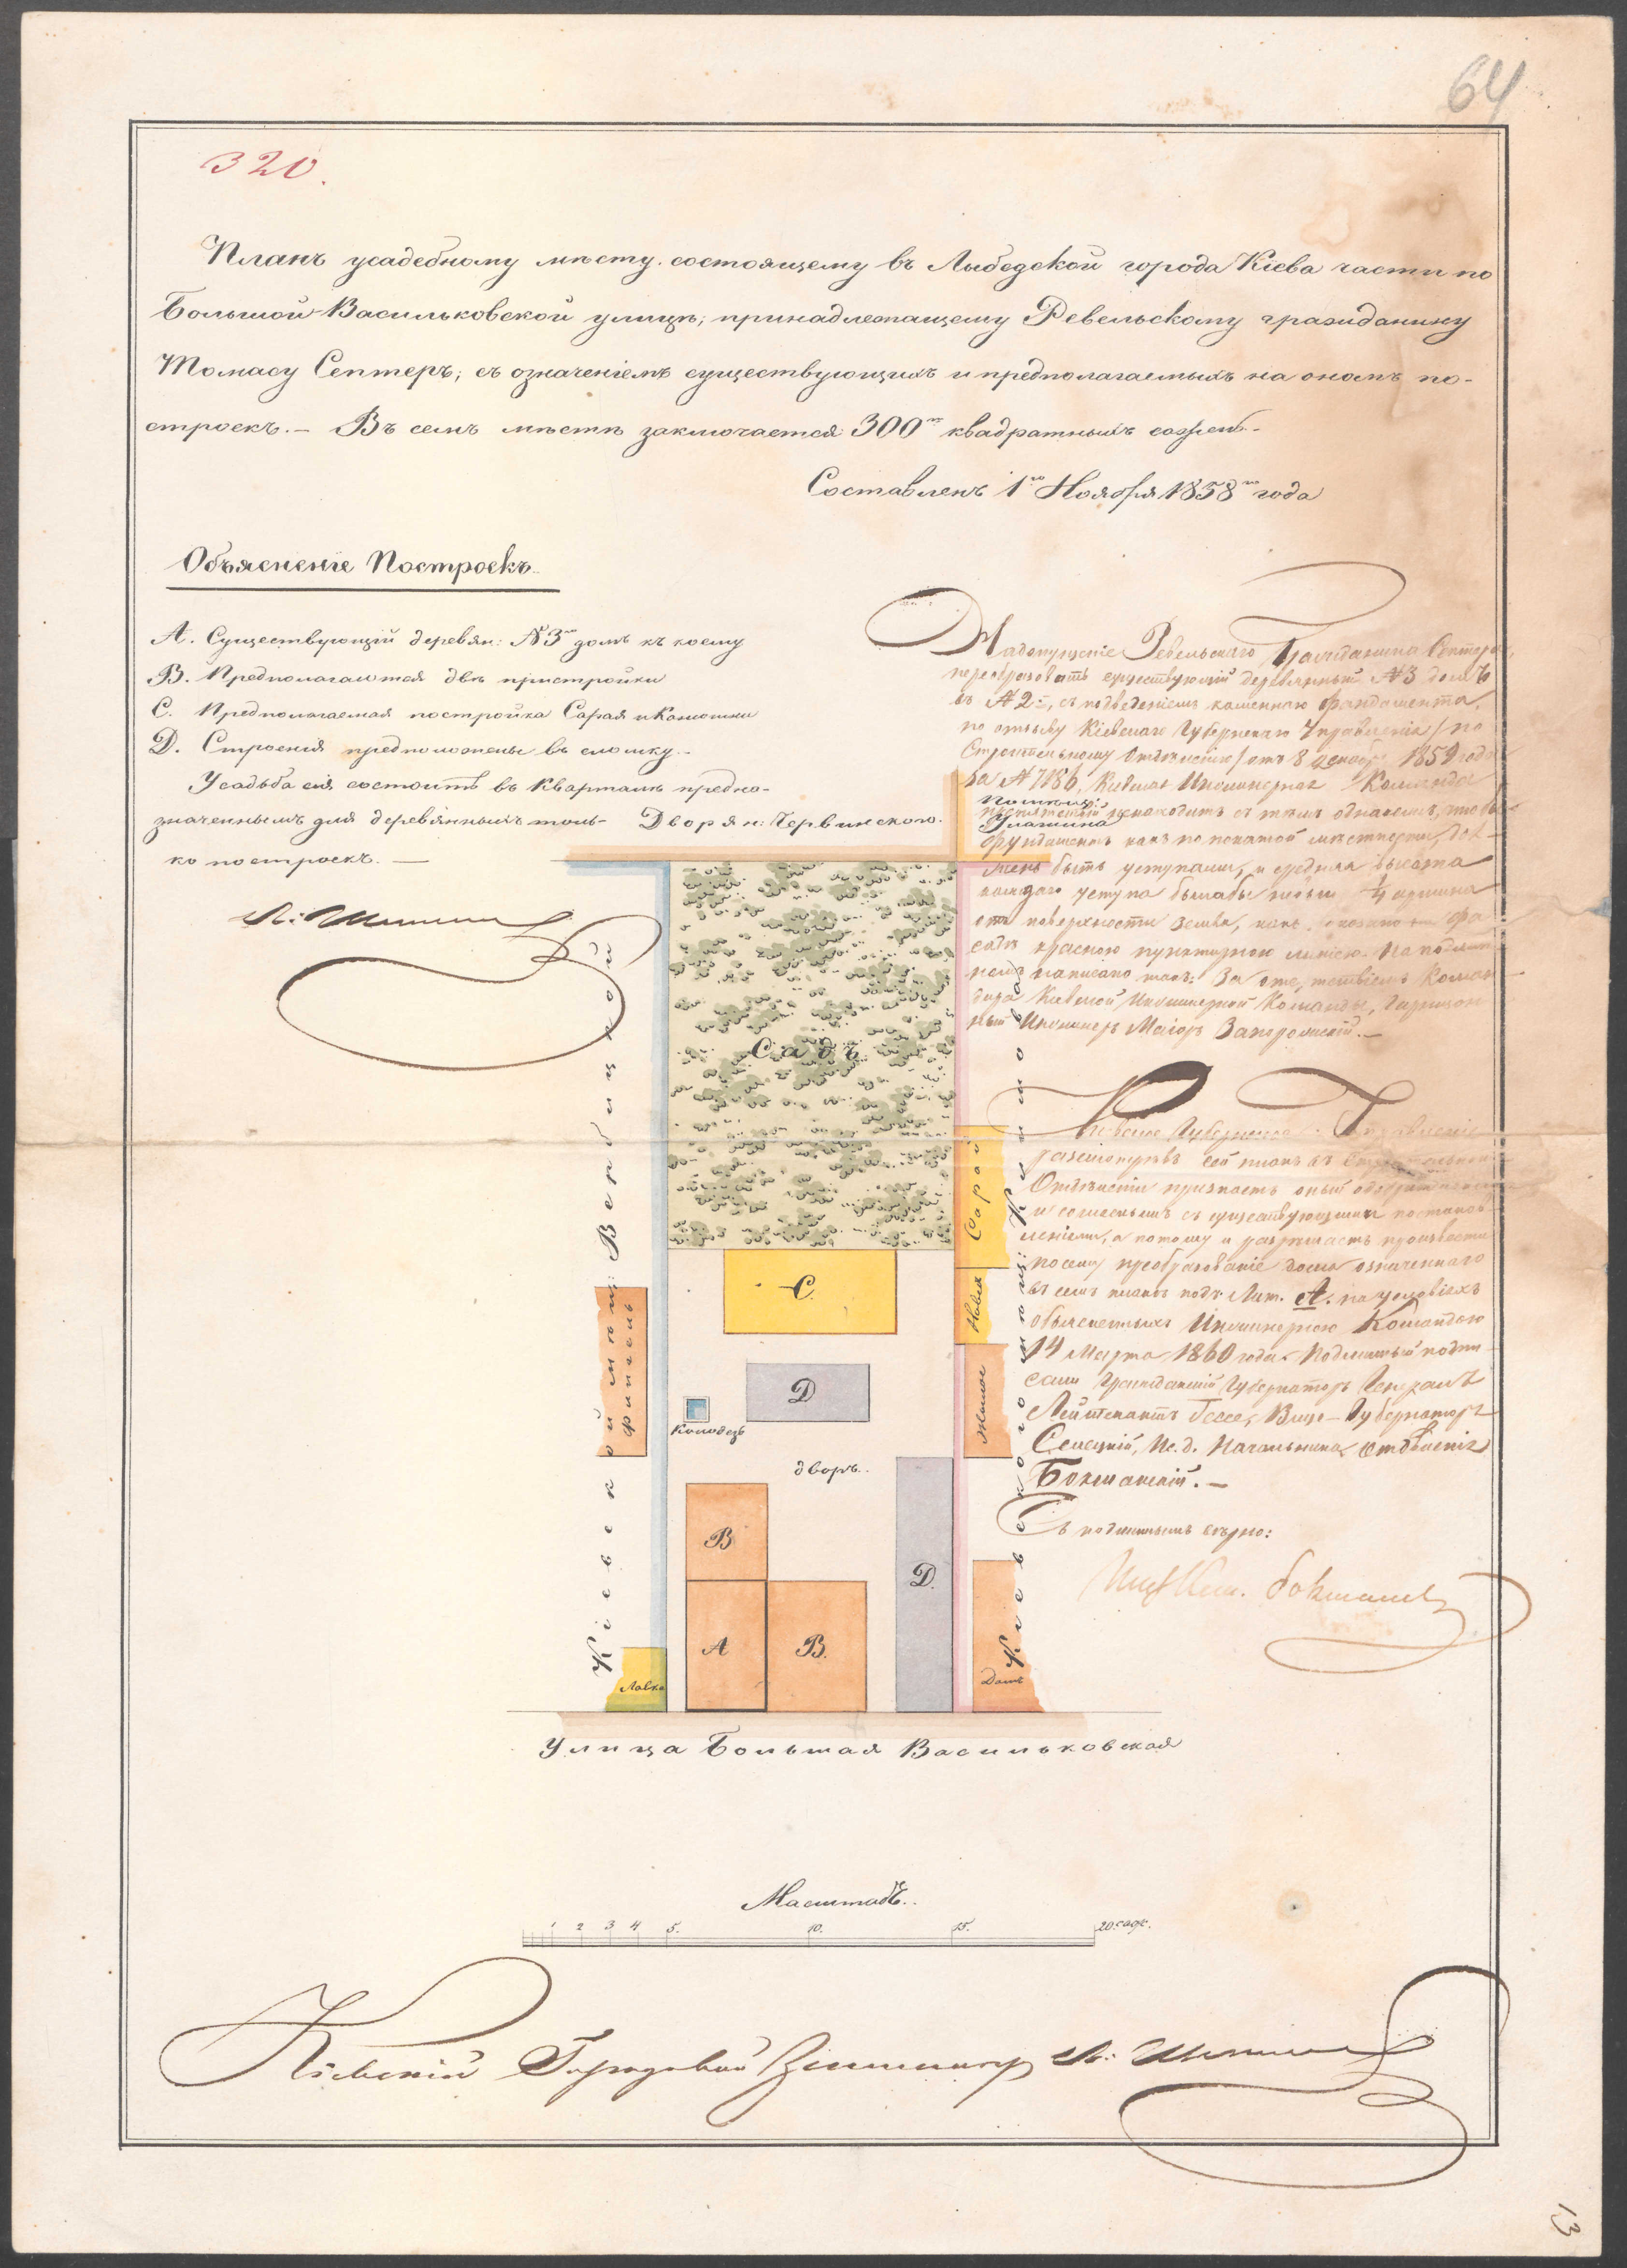 64
320.
Планъ усадебному мѣсту состоящему въ Лыбедской города Кіева части по
Большой-Васильковской улицѣ, принадлежащему Ревельскому гражданину
Томасу Сеттеръ, съ означеніемъ существующихъ и предполагаемыхъ на ономъ по-
строекъ. — Въ семъ мѣстѣ заключается 300 квадратныхъ сажень.
Составленъ 1го Ноября 1858го года
Объясненіе Построекъ.
А. Существующій деревян: №3й домъ къ коему
В. Предполагаются двѣ пристройки
С. Предполагаемая постройка Сарая и Конюшни
D. Строенія предположены въ сломку. —
Усадьба сія состоитъ въ кварталѣ предна-
значенномъ для деревянныхъ толь-
ко построекъ. —
На допущеніе Ревельскаго Гражданина
преобразовать существующій деревянный №3 домъ
въ №2й, съ подведеніемъ каменнаго фундамента,
по отзыву Кіевскаго Губернскаго Управленія /по
Строительному Отдѣленію/ отъ 8 1859 года
за №7186, Кіевская Инженерная Команда
препятствій не находитъ съ тѣмъ однакожъ, чтобы
фундаментъ какъ по покатой мѣстности, дол-
женъ быть уступами, и средняя высота
каждаго уступа былабы не выше ¼ аршина
отъ поверхности земли, какъ показано на фа-
садѣ красною пунктирною линіею. На подлин-
номъ написано такъ: За отсутствіемъ Коман-
дира Кіевской Инженерной Команды, Гарнизон-
ный Инженеръ Маіоръ
Дворян: Червинскаго.
Помѣщ:
Кіевское Губернское Правленіе
разсмотрѣвъ сей планъ въ Строительномъ
Отдѣленіи признаетъ оный
и согласнымъ съ существующими постанов-
леніями, а потому и разрѣшаетъ произвести
по сему преобразованіе дома означеннаго
въ семъ планѣ подъ Лит. А. на условіяхъ
объясненныхъ Инженерною Командою
14 Марта 1860 года. Подлинный подпи-
сали Гражданскій Губернаторъ Генералъ
Лейтенантъ Гессе, Вице-Губернаторъ
Селецкій, Ис. д. Начальника Отдѣленія
Бокшанскій. —
Съ подлиннымъ вѣрно:
Садъ
Сарай
Новой
Жилое
Кіевской мѣщ: Вендицкой
Флигель
С.
D
Колодезь
дворъ.
В
D.
А
В.
Лавка
Домъ
Улица Большая Васильковская
Масштабъ.
1 2 3 4 5. 10. 15. 20 саж.
Кіевскій Городовой
13